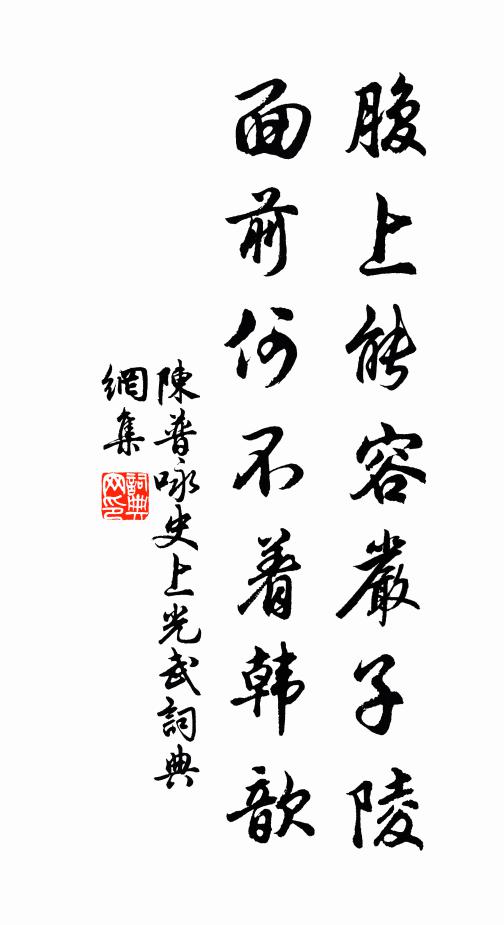 腹上能容嚴子陵
面前何不着韩歆
陳普咏史上光武詞典
網集
詞典網印